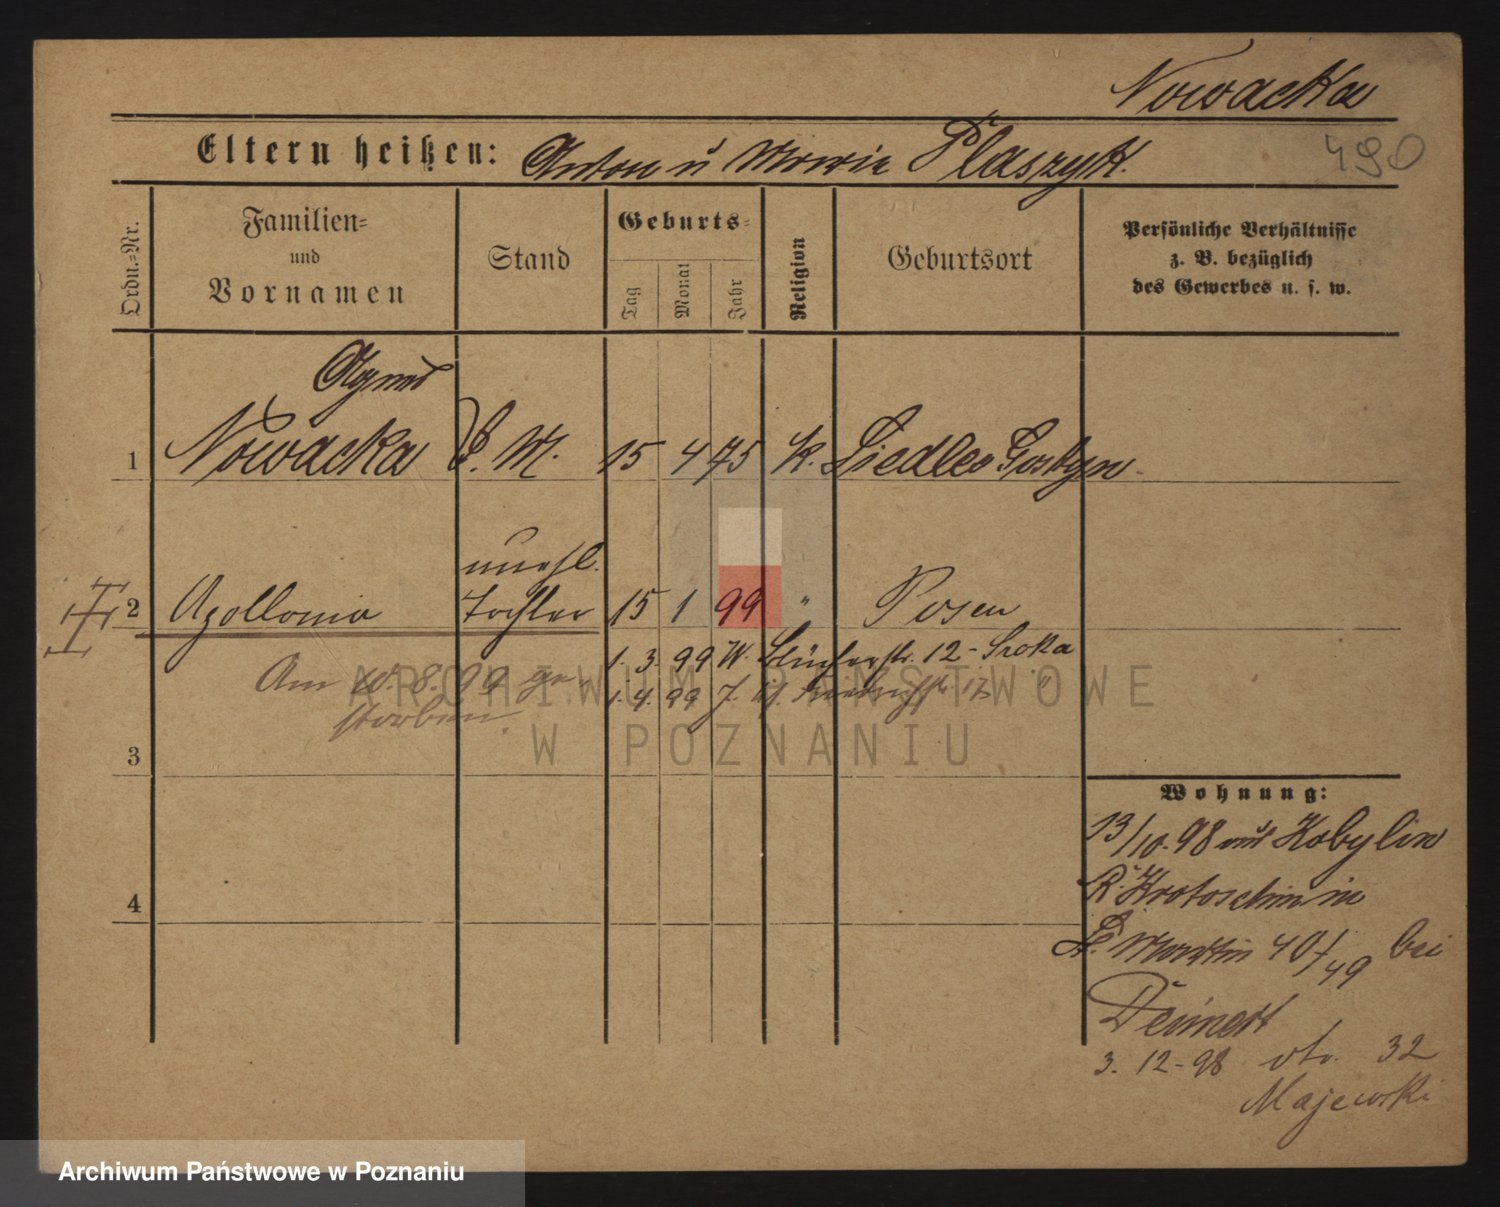 Nowacka
Eltern heißen: Anton u Marie Ptaszyk.
490
Ordn.-Nr.
Familien-
und
Vornamen
Stand
Geburts-
Tag
Monat
Jahr
Religion
Geburtsort
Persönliche Verhältnisse
z. B. bezüglich
des Gewerbes u. s. w.
Agnes
1 Nowacka D. M. 15 4 75 K. Siedlec Gostyn
unehl.
2 Apollonia Tochter 15 1 99 " Posen
1. 3. 99 W. Blücherstr. 12 - Sroka
Am 10. 8. 99 ge-
1. 4. 99 J. "
storben.
3
4
Wohnung:
13/10. 98 aus Kobylin
Kr. Krotoschin in
St. Martin 40/49 bei
Deinert
3. 12 - 98 dto. 32
Majewski
ARCHIWUM PAŃSTWOWE
W POZNANIU
Archiwum Państwowe w Poznaniu